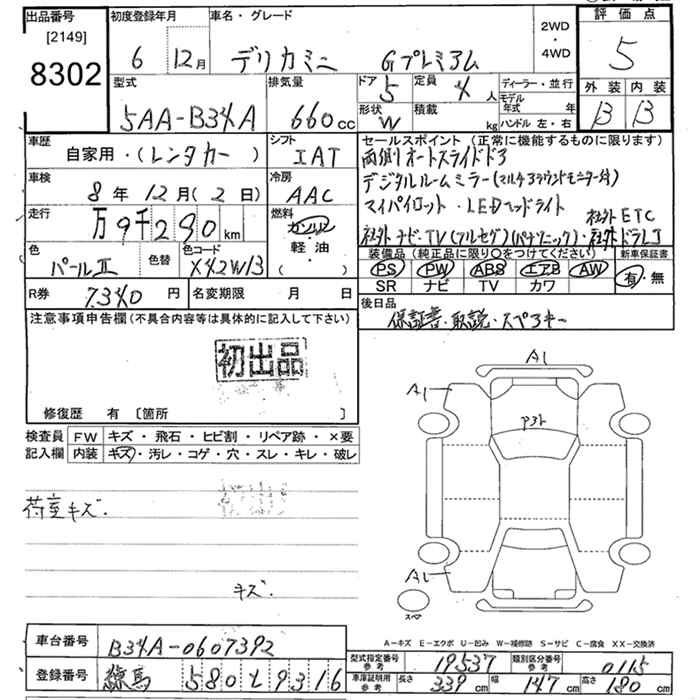 出品番号
[2149]
8302
初度登録年月
6 12月
車名・グレード
デリカミニ Gプレミアム
2WD
・
4WD
評価点
5
外装 内装
B B
型式
5AA-B34A
排気量
660cc
ドア 5
定員 4人
形状 W
積載 kg
ディーラー・並行
モデル年式 年
ハンドル 左・右
車歴
自家用・(レンタカー)
シフト
IAT
車検
8年12月(2日)
冷房
AAC
走行
万9千280km
燃料
ガソリン
軽・油
( )
色
パールII
色替
色コード
X42W/13
R券 7340円
名変期限 月 日
セールスポイント(正常に機能するものに限ります)
両側オートスライドドア
デジタルルームミラー(マルチアラウンドモニター付)
マイパイロット・LEDヘッドライト
社外ETC
社外ナビ・TV(フルセグ)(パナソニック)・社外ドラレコ
装備品(純正品に限り○をつけてください)
新車保証書
PS PW ABS エアB AW
SR ナビ TV カワ
有・無
後日品
保証書・取説・スペアキー
注意事項申告欄(不具合内容等は具体的に記入して下さい)
初出品
修復歴 有 〔箇所 〕
検査員記入欄
FW キズ・飛石・ヒビ割・リペア跡・×要
内装 キズ・汚レ・コゲ・穴・スレ・キレ・破レ
荷室キズ.
キズ.
A1
A1
アスト
A1
スペア
A-キズ E-エクボ U-凹み W-補修跡 S-サビ C-腐食 XX-交換済
車台番号 B34A-0607392
登録番号 練馬 580 そ 9316
型式指定番号 参考 19537
類別区分番号 参考 0115
車庫証明用 参考 長さ 339cm 幅 147cm 高さ 180cm